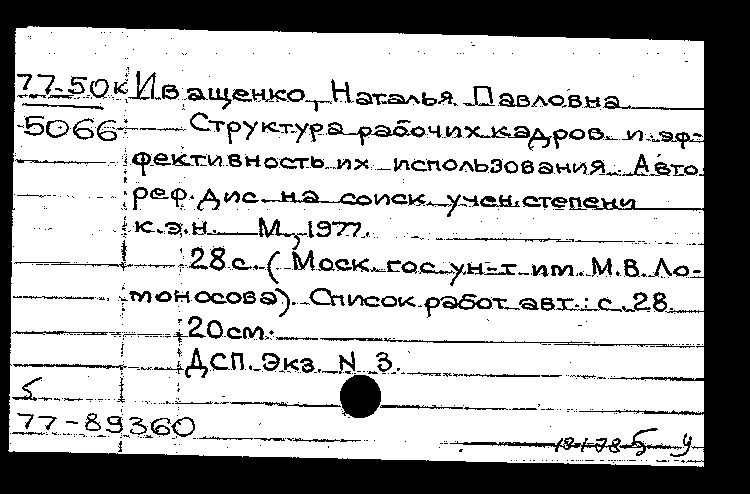 77-50к Иващенко, Наталья Павловна
5066 Структура рабочих кадров и эф-
фективность их использования. Авто-
реф. дис. на соиск. учен. степени
к.э.н. М., 1977.
28с. (Моск. гос. ун-т им. М.В. Ло-
моносова). Список работ авт.: с. 28.
20см.
ДСП. Экз. N 3.
5
77-89360